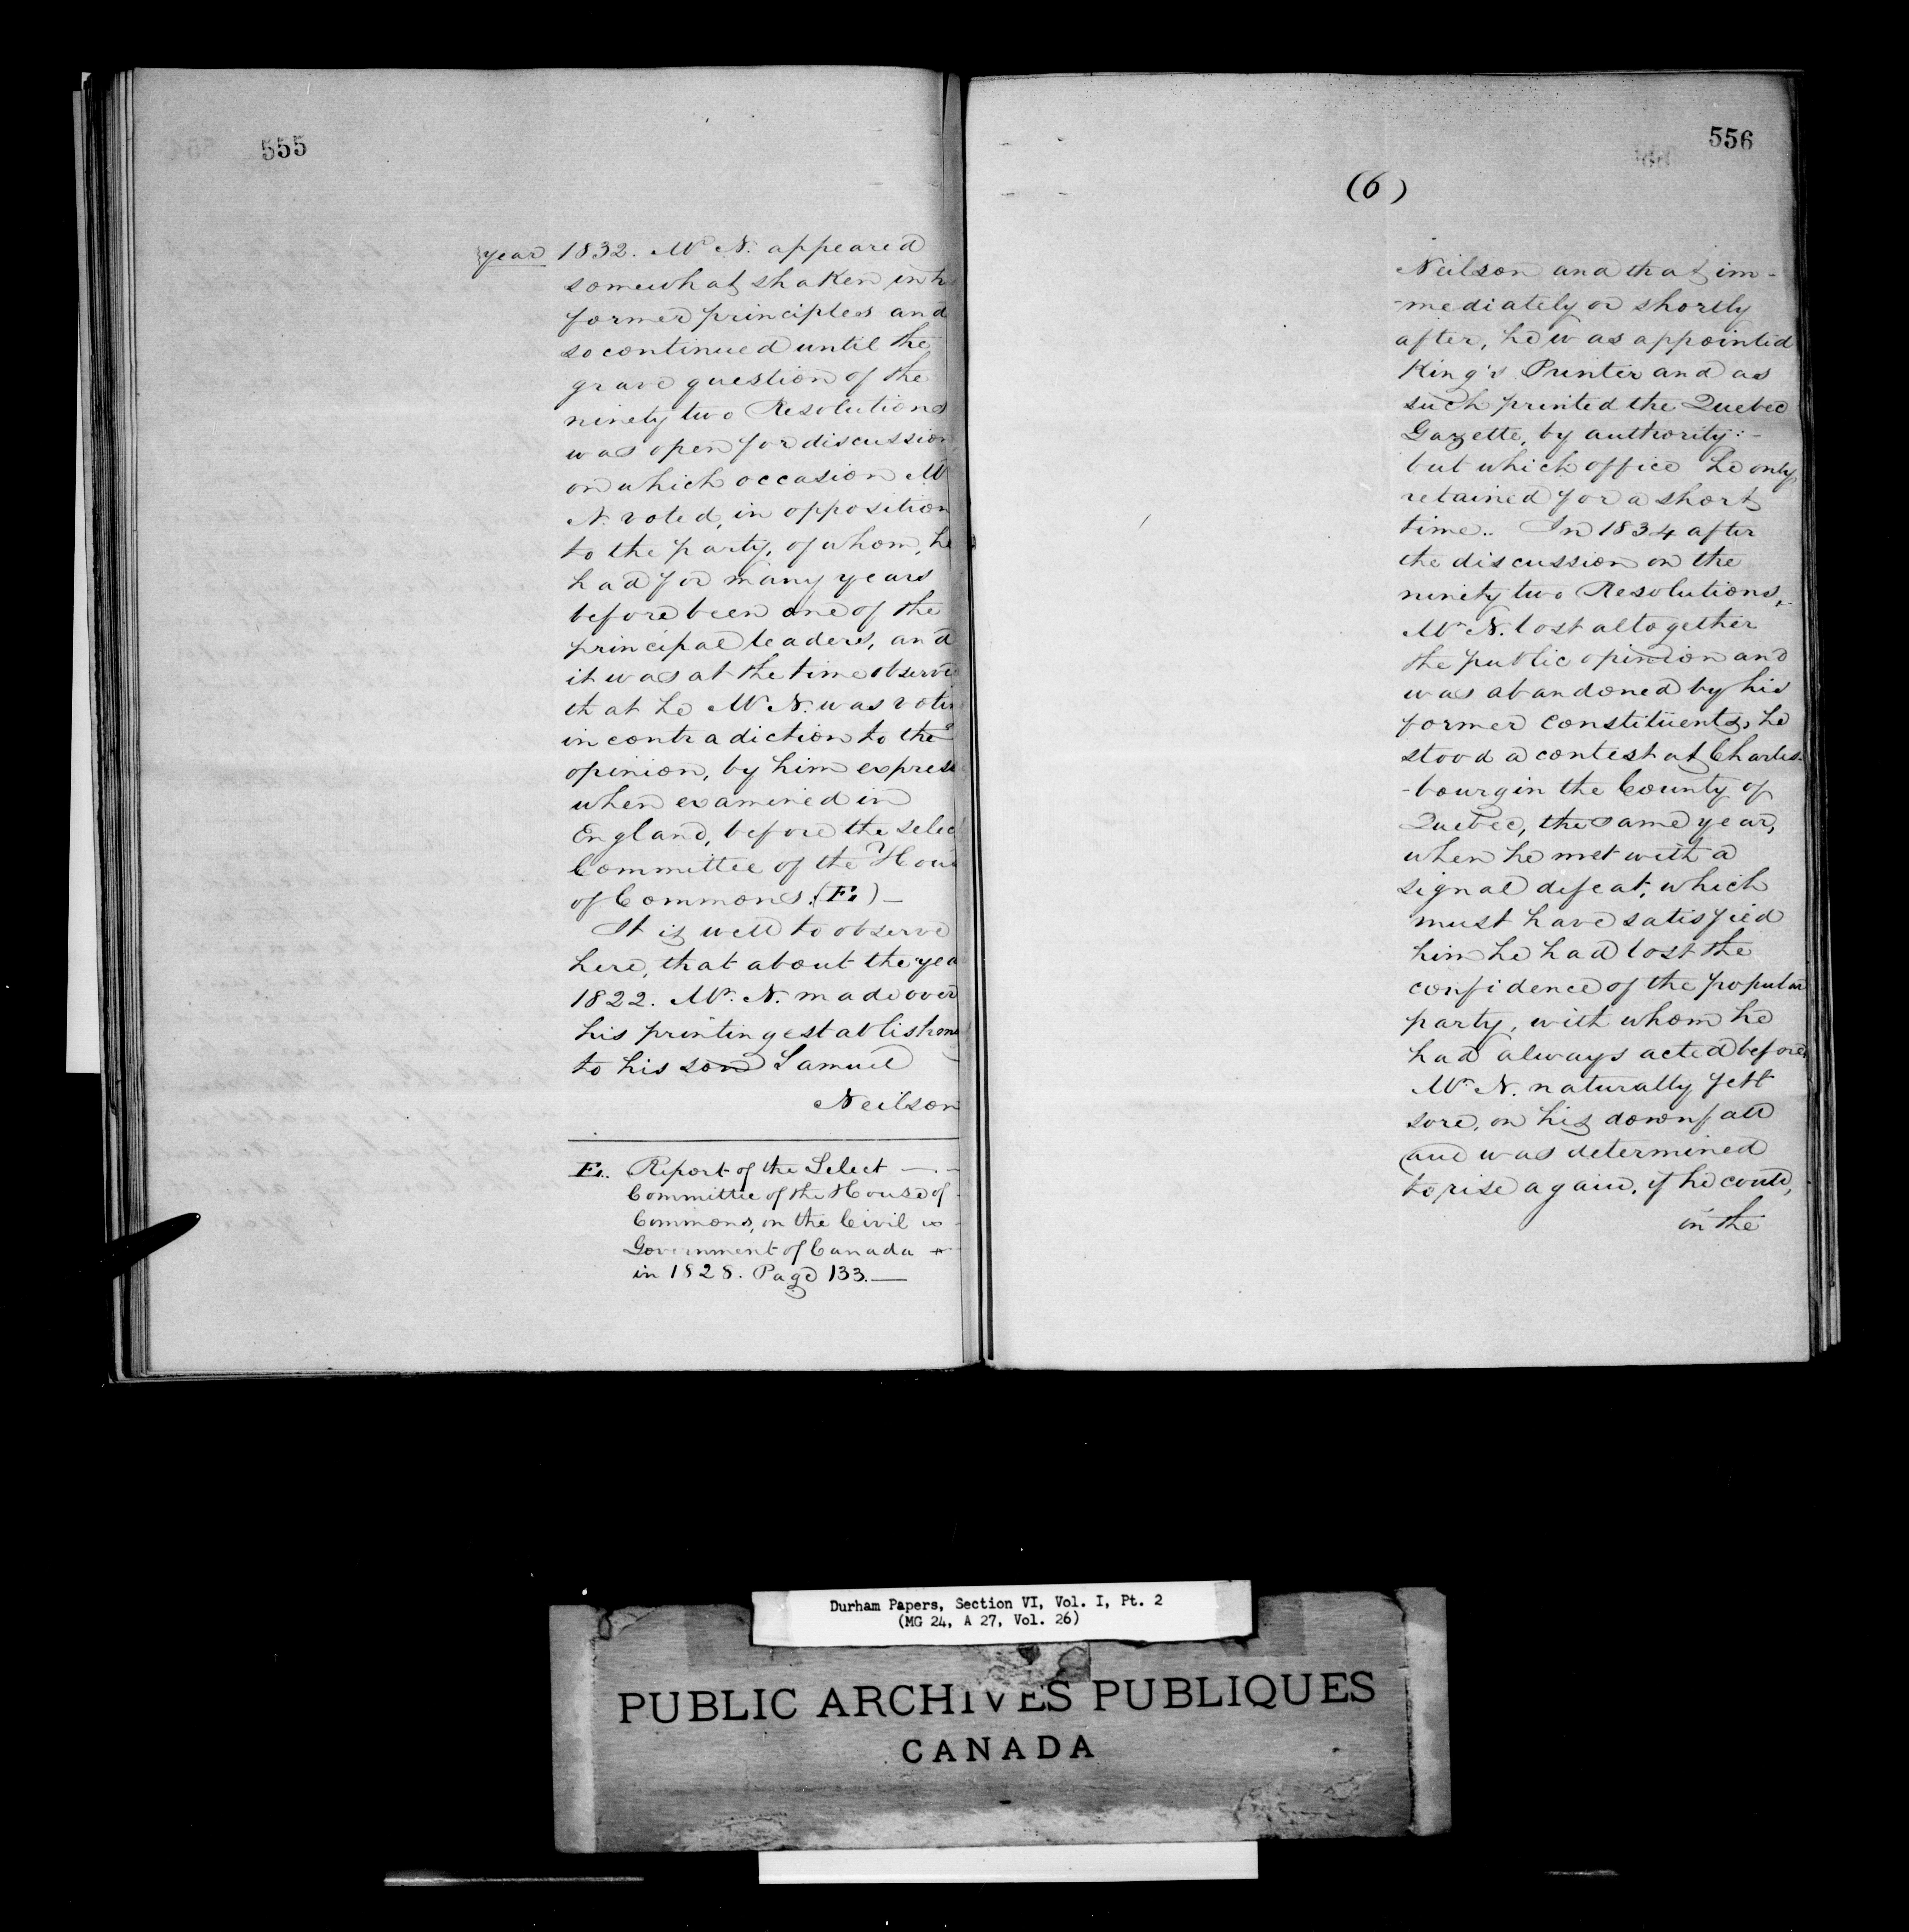 555
year 1832. Mr N. appeared
somewhat shaken in h
former principles and
so continued until the
grave question of the
ninety two Resolutions
was open for discussion
on which occasion Mr
N. voted, in opposition
to the party, of whom, he
had for many years
before been one of the
principal leaders, and
it was at the time observed
that he Mr N. was votin
in contradiction to the
opinion, by him express
when examined in
England, before the selec
Committee of the Hous
of Commons. (E.) —
It is well to observe
here, that about the yea
1822. Mr. N. made over
his printing establishme
to his son Samuel
Neilson
E. Report of the Select —
Committee of the House of
Commons, on the Civil
Government of Canada
in 1828. Page 133. —
556
(6)
Neilson and that im-
-mediately or shortly
after, he was appointed
King's Printer and as
such printed the Quebec
Gazette, by authority: -
but which office he only
retained for a short
time.. In 1834 after
the discussion on the
ninety two Resolutions,
Mr N. lost altogether
the public opinion and
was abandoned by his
former constituents, he
stood a contest at Charles-
-bourg in the County of
Quebec, the same year,
when he met with a
signal defeat, which
must have satisfied
him he had lost the
confidence of the popular
party, with whom he
had always acted before,
Mr N. naturally felt
sore, on his downfall
and was determined
to rise again, if he could,
in the
Durham Papers, Section VI, Vol. I, Pt. 2
(MG 24, A 27, Vol. 26)
PUBLIC ARCHIVES PUBLIQUES
CANADA